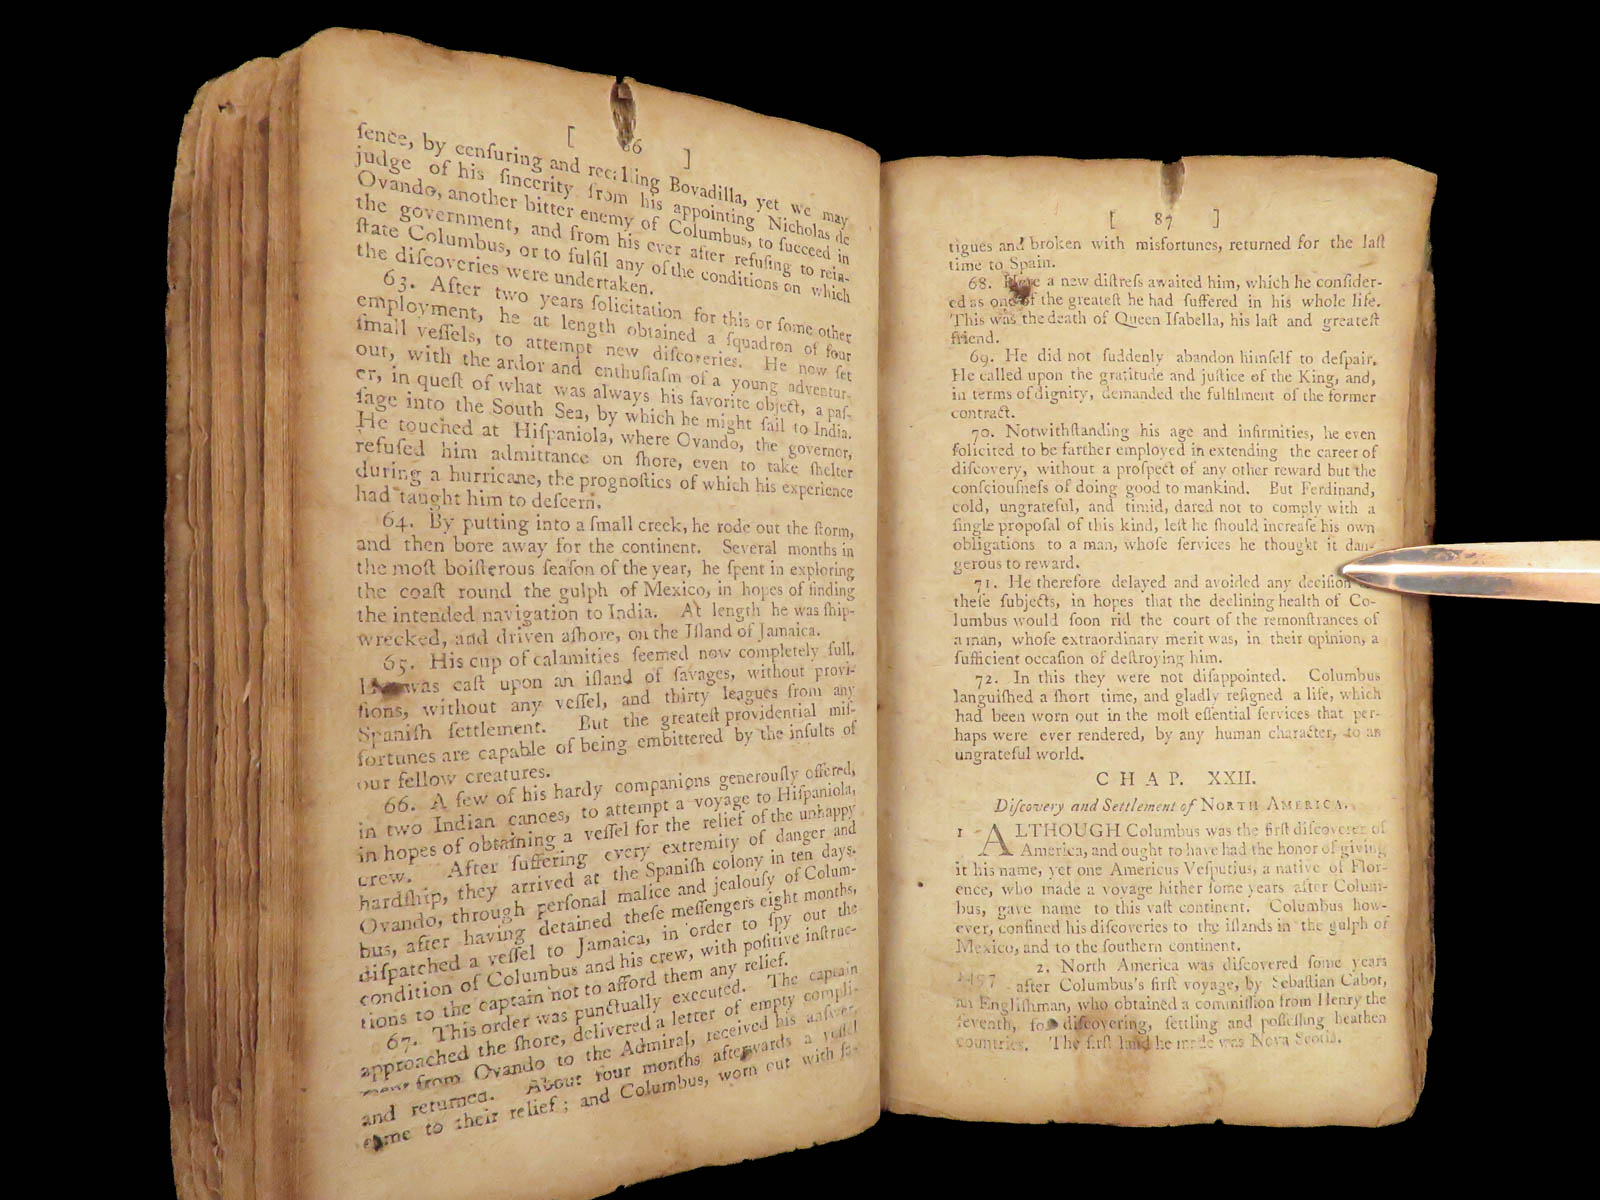 [ 86 ]
ſence, by cenſuring and recalling Bovadilla, yet we may
judge of his ſincerity from his appointing Nicholas de
Ovando, another bitter enemy of Columbus, to ſucceed in
the government, and from his ever after refuſing to rein-
ſtate Columbus, or to fulfil any of the conditions on which
the diſcoveries were undertaken.
63. After two years ſolicitation for this or ſome other
employment, he at length obtained a ſquadron of four
ſmall veſſels, to attempt new diſcoveries. He now ſet
out, with the ardor and enthuſiaſm of a young adventur-
er, in queſt of what was always his favorite object, a paſ-
ſage into the South Sea, by which he might ſail to India.
He touched at Hiſpaniola, where Ovando, the governor,
refuſed him admittance on ſhore, even to take ſhelter
during a hurricane, the prognoſtics of which his experience
had taught him to deſcern.
64. By putting into a ſmall creek, he rode out the ſtorm,
and then bore away for the continent. Several months in
the moſt boiſterous ſeaſon of the year, he ſpent in exploring
the coaſt round the gulph of Mexico, in hopes of finding
the intended navigation to India. At length he was ſhip-
wrecked, and driven aſhore, on the Iſland of Jamaica.
65. His cup of calamities ſeemed now completely full.
He was caſt upon an iſland of ſavages, without provi-
ſions, without any veſſel, and thirty leagues from any
Spaniſh ſettlement. But the greateſt providential miſ-
fortunes are capable of being embittered by the inſults of
our fellow creatures.
66. A few of his hardy companions generouſly offered,
in two Indian canoes, to attempt a voyage to Hiſpaniola,
in hopes of obtaining a veſſel for the relief of the unhappy
crew. After ſuffering every extremity of danger and
hardſhip, they arrived at the Spaniſh colony in ten days.
Ovando, through perſonal malice and jealouſy of Colum-
bus, after having detained theſe meſſengers eight months,
diſpatched a veſſel to Jamaica, in order to ſpy out the
condition of Columbus and his crew, with poſitive inſtruc-
tions to the captain not to afford them any relief.
67. This order was punctually executed. The captain
approached the ſhore, delivered a letter of empty compli-
ment from Ovando to the Admiral, received his anſwer,
and returned. About four months afterwards a veſſel
came to their relief; and Columbus, worn out with fa-
[ 87 ]
tigues and broken with misfortunes, returned for the laſt
time to Spain.
68. Here a new diſtreſs awaited him, which he conſider-
ed as one of the greateſt he had ſuffered in his whole life.
This was the death of Queen Iſabella, his laſt and greateſt
friend.
69. He did not ſuddenly abandon himſelf to deſpair.
He called upon the gratitude and juſtice of the King, and,
in terms of dignity, demanded the fulfilment of the former
contract.
70. Notwithſtanding his age and infirmities, he even
ſolicited to be farther employed in extending the career of
diſcovery, without a proſpect of any other reward but the
conſciouſneſs of doing good to mankind. But Ferdinand,
cold, ungrateful, and timid, dared not to comply with a
ſingle propoſal of this kind, leſt he ſhould increaſe his own
obligations to a man, whoſe ſervices he thought it dan-
gerous to reward.
71. He therefore delayed and avoided any deciſion
theſe ſubjects, in hopes that the declining health of Co-
lumbus would ſoon rid the court of the remonſtrances of
a man, whoſe extraordinary merit was, in their opinion, a
ſufficient occaſion of deſtroying him.
72. In this they were not diſappointed. Columbus
languiſhed a ſhort time, and gladly reſigned a life, which
had been worn out in the moſt eſſential ſervices that per-
haps were ever rendered, by any human character, to an
ungrateful world.
CHAP. XXII.
Diſcovery and Settlement of NORTH AMERICA.
1 ALTHOUGH Columbus was the firſt diſcoverer of
America, and ought to have had the honor of giving
it his name, yet one Americus Veſputius, a native of Flor-
ence, who made a voyage hither ſome years after Colum-
bus, gave name to this vaſt continent. Columbus how-
ever, confined his diſcoveries to the iſlands in the gulph of
Mexico, and to the ſouthern continent.
2. North America was diſcovered ſome years
1497 after Columbus's firſt voyage, by Sebaſtian Cabot,
an Engliſhman, who obtained a commiſſion from Henry the
ſeventh, for diſcovering, ſettling and poſſeſſing heathen
countries. The firſt land he made was Nova Scotia.